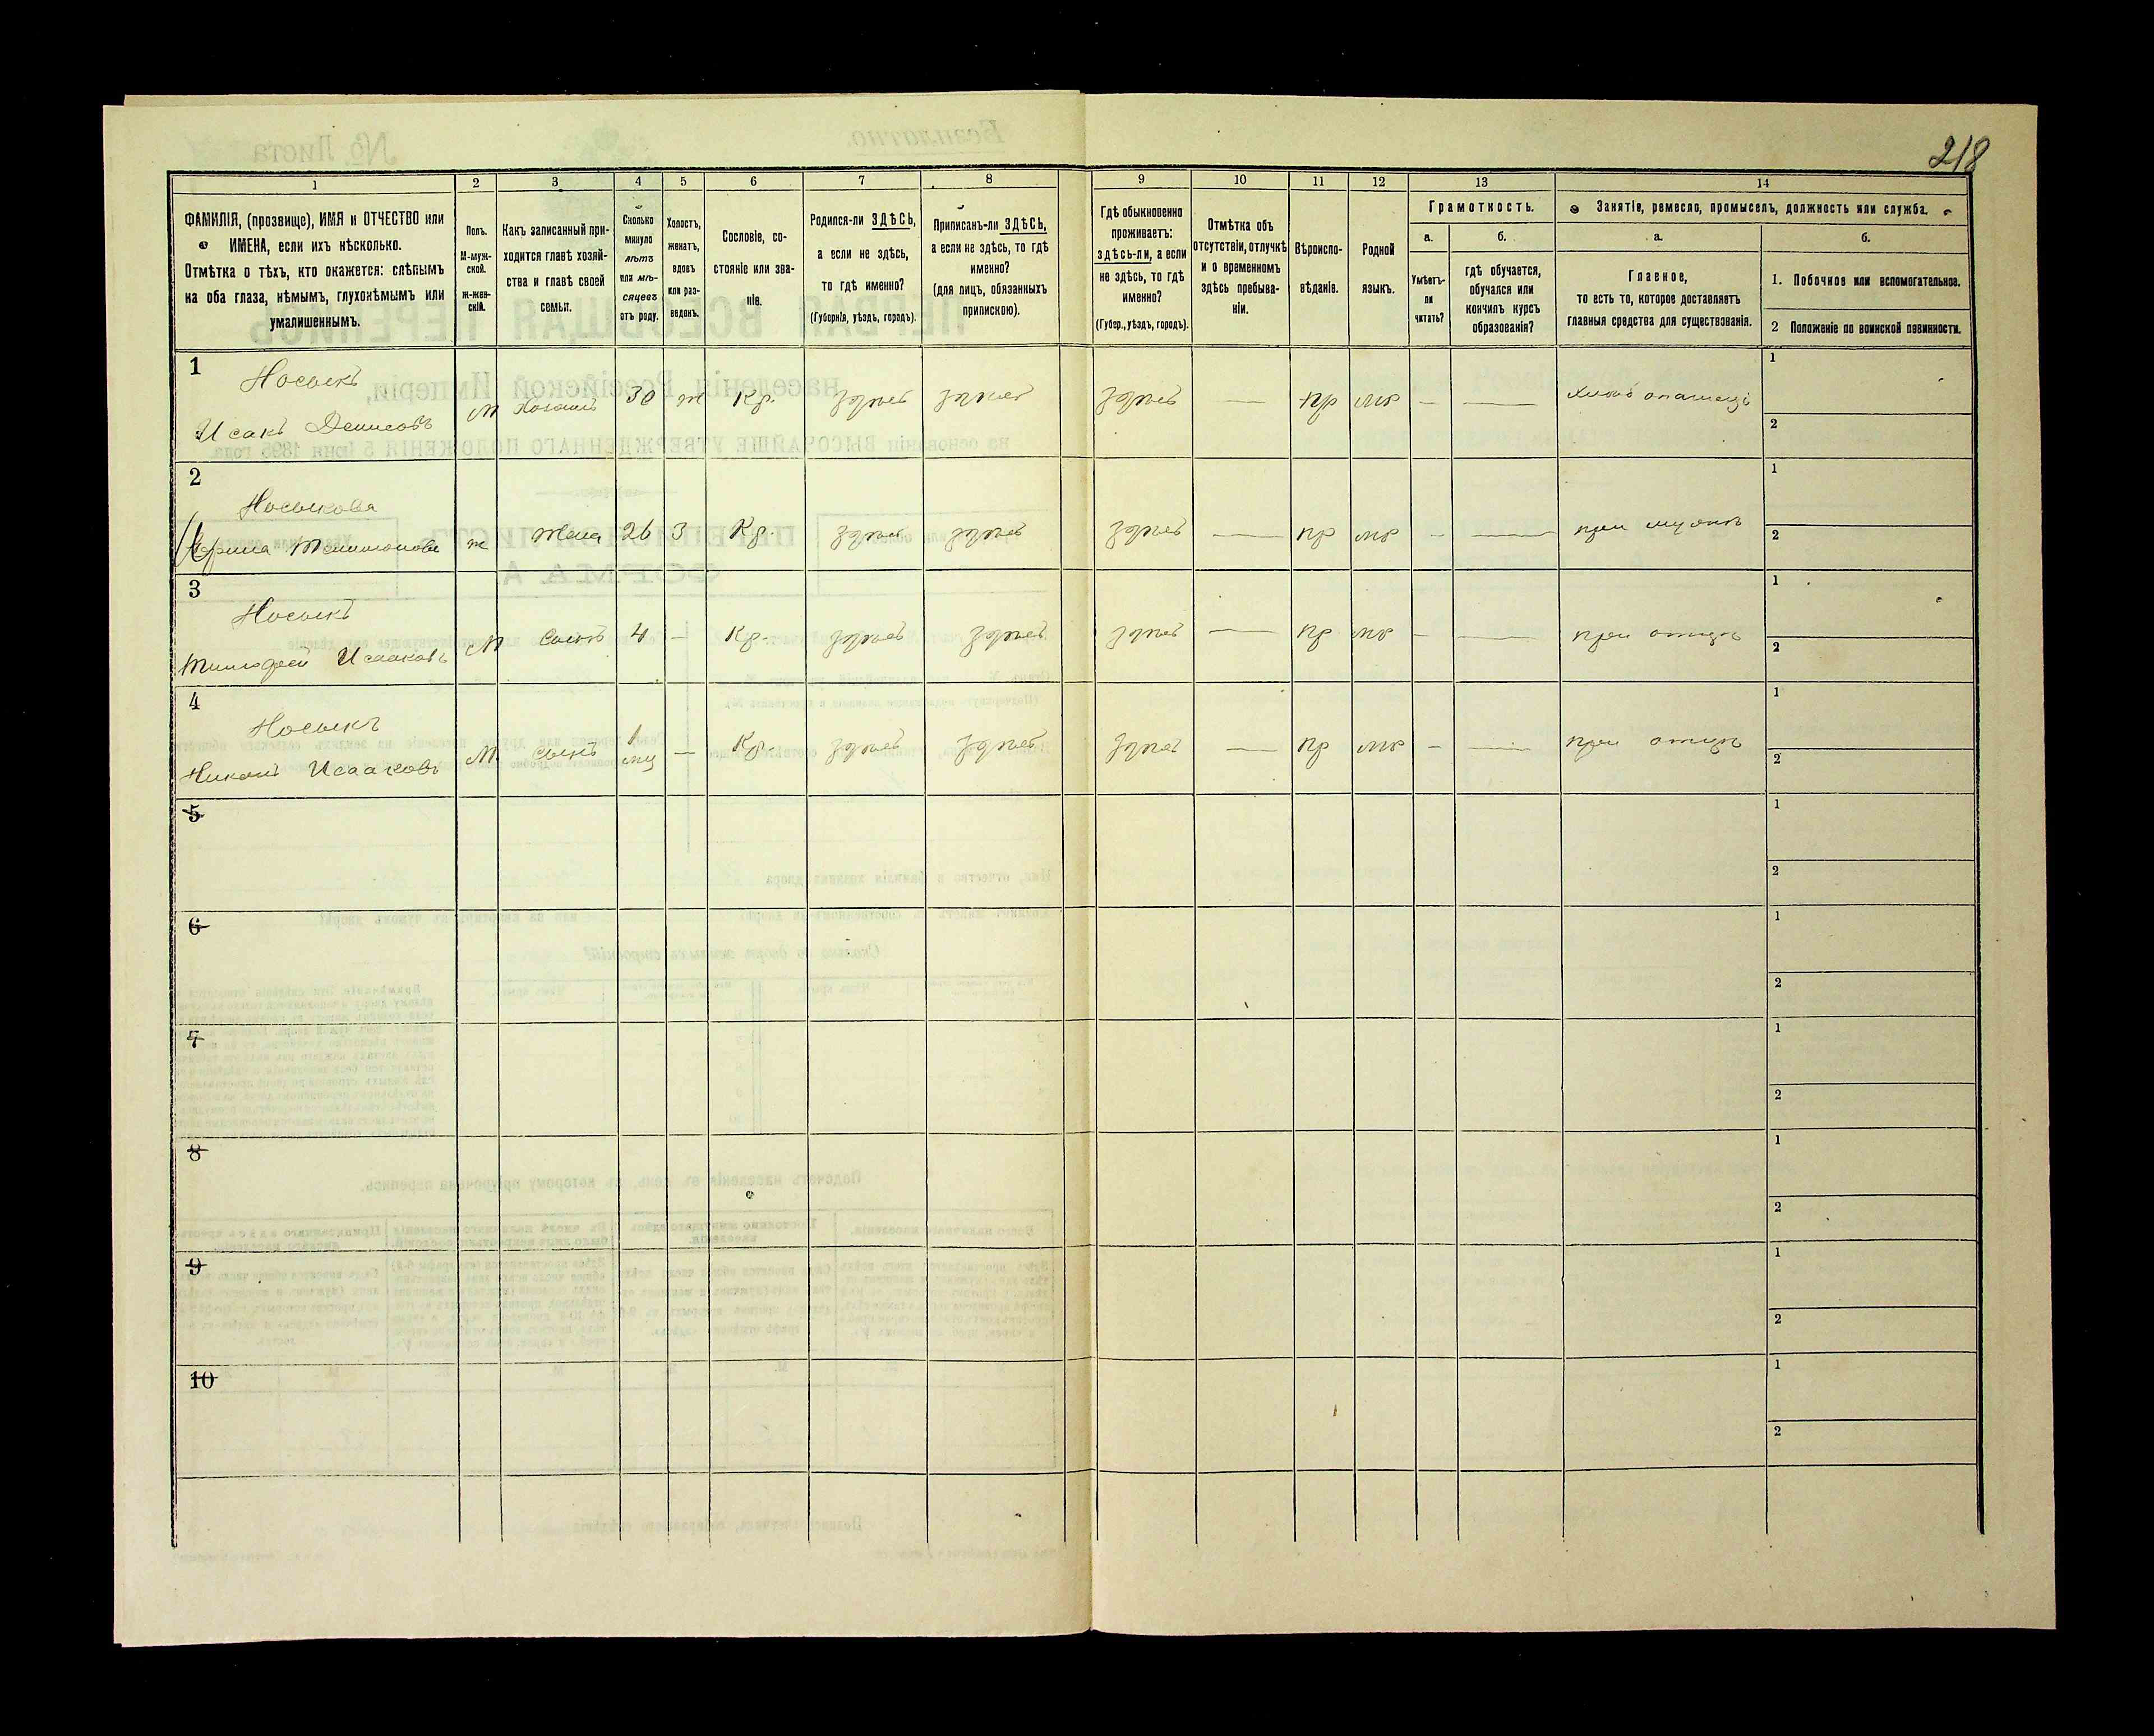 218
1
2
3
4
5
6
7
8
9
10
11
12
13
14
ФАМИЛІЯ, (прозвище), ИМЯ и ОТЧЕСТВО или
ИМЕНА, если ихъ нѣсколько.
Отмѣтка о тѣхъ, кто окажется: слѣпымъ
на оба глаза, нѣмымъ, глухонѣмымъ или
умалишеннымъ.
Полъ.
М-муж-
ской.
Ж-жен-
скій.
Какъ записанный при-
ходится главѣ хозяй-
ства и главѣ своей
семьи.
Сколько
минуло
лѣтъ
или мѣ-
сяцевъ
отъ роду.
Холостъ,
женатъ,
вдовъ
или раз-
веденъ.
Сословіе, со-
стояніе или зва-
ніе.
Родился-ли ЗДѢСЬ,
а если не здѣсь,
то гдѣ именно?
(Губернія, уѣздъ, городъ).
Приписанъ-ли ЗДѢСЬ,
а если не здѣсь, то гдѣ
именно?
(для лицъ, обязанныхъ
припискою).
Гдѣ обыкновенно
проживаетъ:
здѣсь-ли, а если
не здѣсь, то гдѣ
именно?
(Губер., уѣздъ, городъ).
Отмѣтка объ
отсутствіи, отлучкѣ
и о временномъ
здѣсь пребыва-
ніи.
Вѣроиспо-
вѣданіе.
Родной
языкъ.
Грамотность.
а.
Умѣетъ-
ли
читать?
б.
гдѣ обучается,
обучался или
кончилъ курсъ
образованія?
Занятіе, ремесло, промыселъ, должность или служба.
а.
Главное,
то есть то, которое доставляетъ
главныя средства для существованія.
б.
1. Побочное или вспомогательное.
2 Положеніе по воинской повинности.
1
Носыкъ
Исакъ Денисовъ
М
Хозяинъ
30
ж
Кр.
здѣсь
здѣсь
здѣсь
—
пр
мр
—
—
1
2
2
Носыкова
ж
Жена
26
З
Кр.
здѣсь
здѣсь
здѣсь
—
пр
мр
—
—
при мужѣ
1
2
3
Носыкъ
Тимофей Исааковъ
М
Сынъ
4
—
Кр.
здѣсь
здѣсь
здѣсь
—
пр
мр
—
—
при отцѣ
1
2
4
Носыкъ
Никонъ Исааковъ
М
Сынъ
1
мц
—
Кр.
здѣсь
здѣсь
здѣсь
—
пр
мр
—
—
при отцѣ
1
2
5
1
2
6
1
2
7
1
2
8
1
2
9
1
2
10
1
2